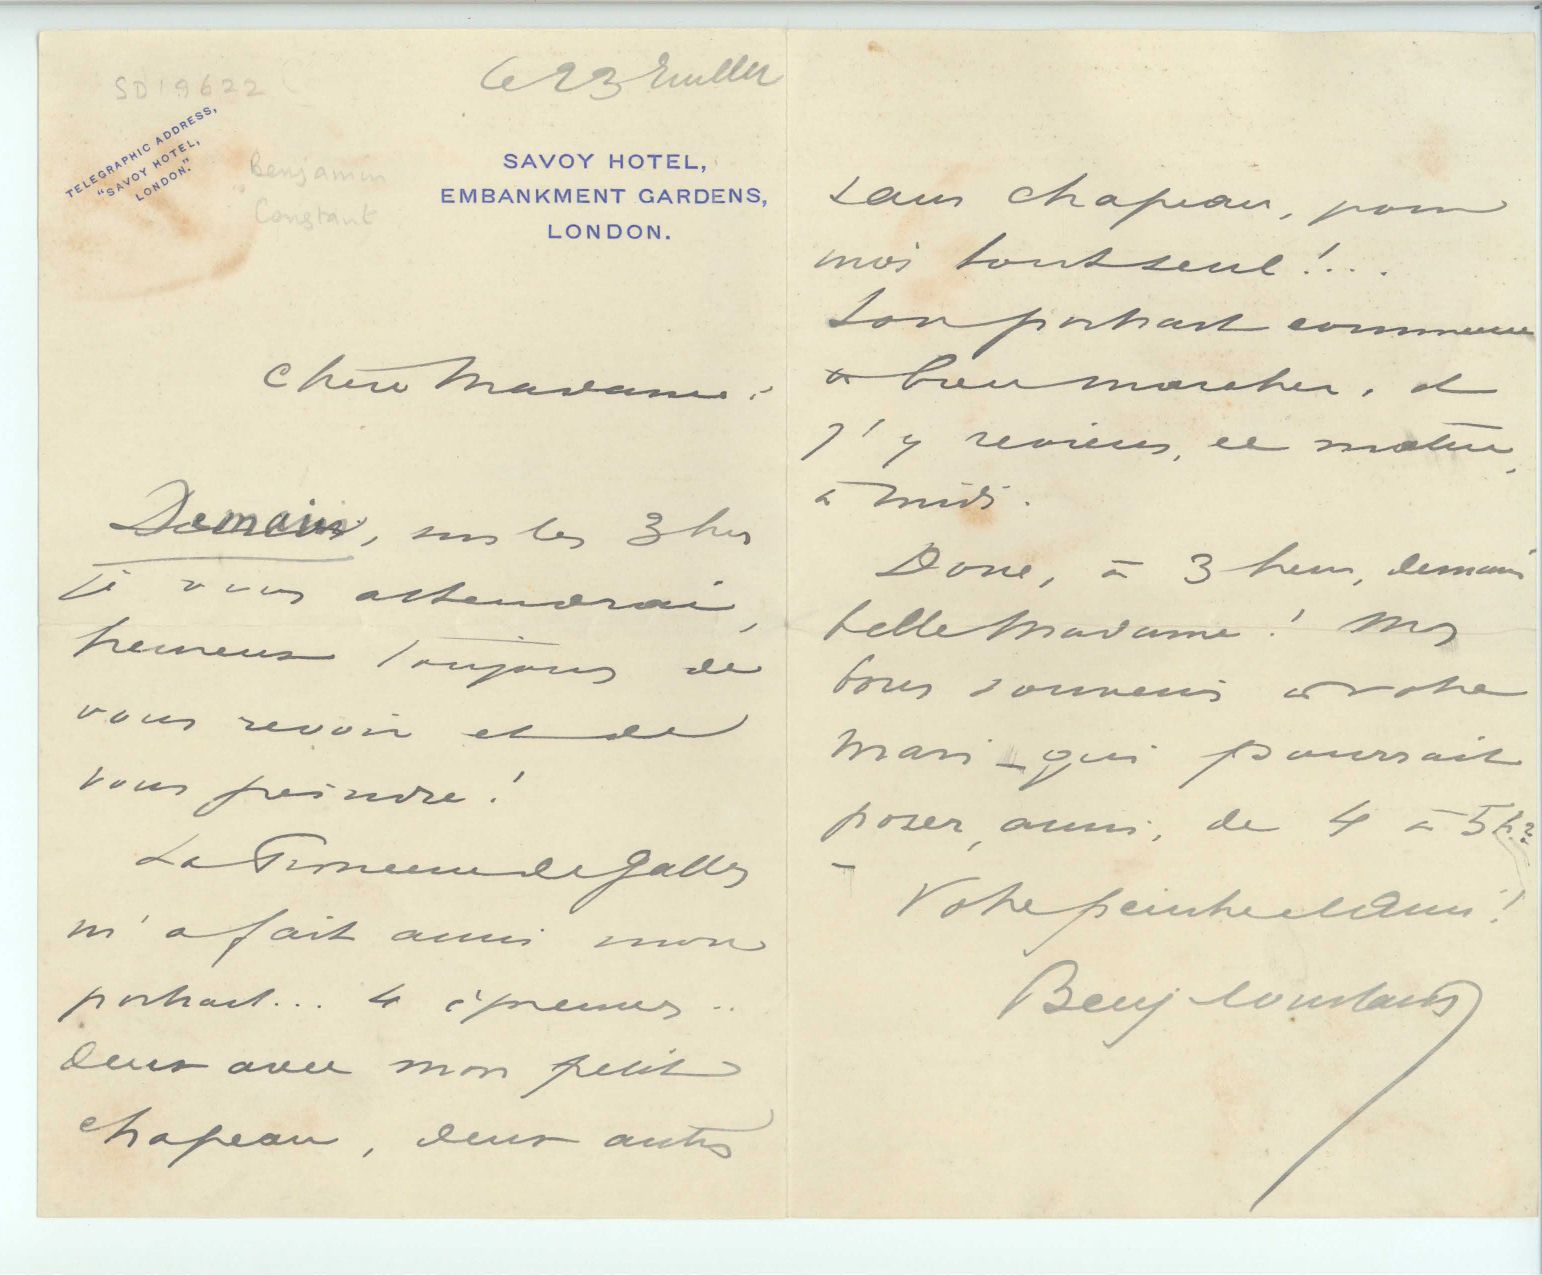 SD19622
TELEGRAPHIC ADDRESS,
"SAVOY HOTEL,
LONDON."
Benjamin
Constant
SAVOY HOTEL,
EMBANKMENT GARDENS,
LONDON.
Chère Madame :
Demain, vers les 3 hrs
je vous attendrai,
heureux toujours de
vous revoir et de
vous peindre !
La Princesse de Galles
m'a fait aussi mon
portrait... 4 épreuves..
deux avec mon petit
chapeau, deux autres
sans chapeau, pour
moi tout seul !...
Son portrait commence
à bien marcher, et
j'y reviens, ce matin,
à midi.
Donc, à 3 heures, demain
belle Madame ! Mes
bons souvenirs à votre
Mari - qui pourrait
poser, aussi, de 4 à 5 h. ?
-
Votre peintre et ami !
Benj Constant